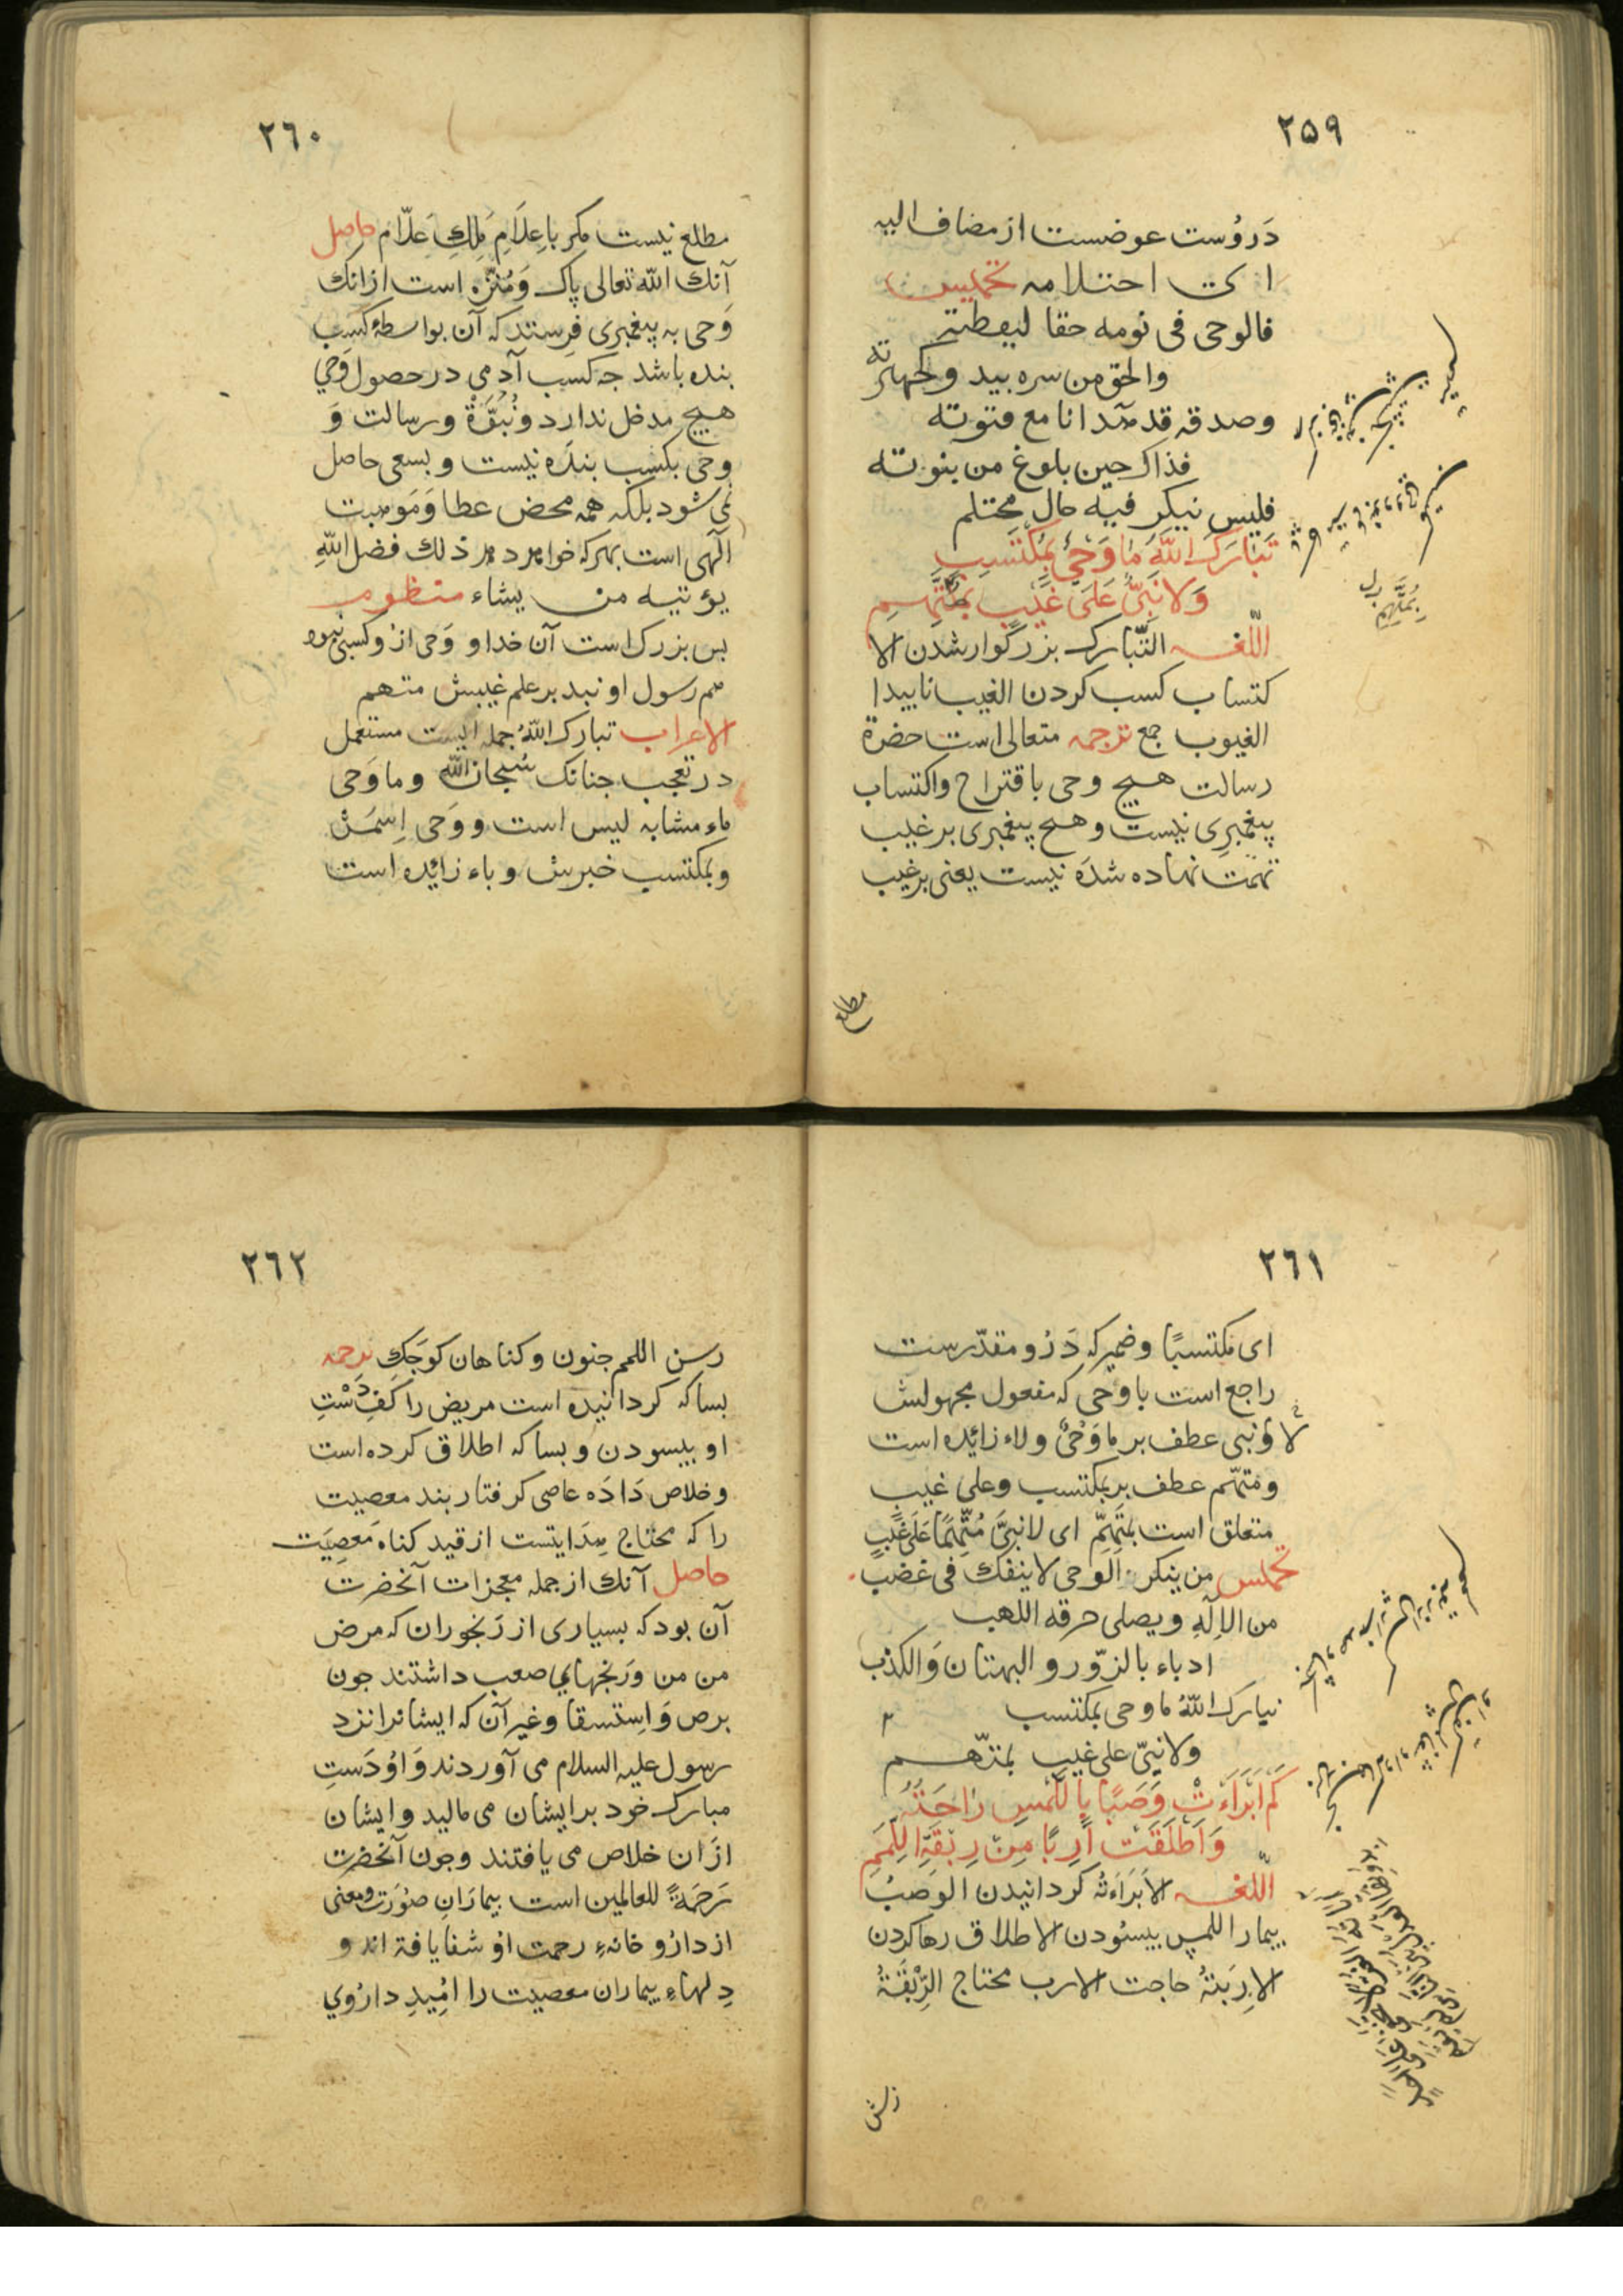 ٢٥٩
دَروُست عوضست از مضاف الیه
ای احتلامه تخمیس
فالوحی فی نومه حقا لیقظته
والحق من سره یبد و لجهاته
وصدقه قد بدا نا مع فتوته
فذاک حین بلوغ من بنوته
فلیس نیکر فیه حال محتلم
تَبَارَکَ اللّٰهُ مَا وَحْیٌ بِمُکْتَسِبٍ
وَلَا نَبِیٌّ عَلَی غَیْبٍ بِمُتَّهَمِ
اللّغه التَّبارک بزرگوار شدن الا
کتساب کسب کردن الغیب ناپیدا
الغیوب جمع ترجمه متعالی است حضرة
رسالت هیچ وحی باقتراح واکتساب
پیغمبرِی نیست و هیچ پیغمبری بر غیب
تهمت نهاده شدَه نیست یعنی بر غیب
مطلع
٢٦٠
مطلع نیست مکر باِعِلَامِ مَلِكِ عَلّام حاصل
آنك اللّه تعالی پاک وَمُنَزَّه است از انك
وَحی به پیغمبرِی فرِستد که آن بواسطهٔ کسب
بنده باشد جه کسب آدمی در حصول وَحي
هیچ مدخل ندارد ونُبُوَّة ورسالت وَ
وحی بکسب بندَه نیست و بسعی حاصل
نمی شود بلکه همه محض عطا وَمَوهبت
الٓهی است بهرکه خواهد دهد ذلك فضل اللّهِ
یؤتیه من یشاء منظوم
بس بزرك است آن خدا و وَحی ازُو کسبی نبود
هم رسول او نبد بر علم غیبش متهم
الاعراب تبارك اللّهُ جمله ایست مستعمل
در تعجب جنانک سُبحان اللّه وما وَحی
ماء مشابه لیس است و وَحی اِسمَش
وبمکتسب خبرش و باء زائده است
٢٦١
ای مکتسبًا وضمیر که دَرُو مقدّرست
راجع است با وحی که مفعول مجهولش
لا وَنبی عطف بر ما وَحْیٌ ولاء زائده است
ومتهّم عطف بر بمکتسب وعلی غیبٍ
متعلق است بمتهمّ ای لا نبیَّ مُتّهَمًا عَلَی غَیْبٍ
تخمیس من ینکر الوحی لا ینفک فی غضب
من الاِلٓهِ ویصلی حرقه اللهب
ادباء بالزّور و البهتان وَالکذب
تبارك اللّهُ ما وحی بمکتسب
ولا نبیّ علی غیب بمتّهم
کَمْ اَبْرَاَتْ وَصِبًا بِاللَّمْسِ رَاحَتُهُ
وَاَطْلَقَتْ اَرِبًا مِنْ رِبْقَةِ اللَّمَمِ
اللّغه الابَرَاءَتُه کردانیدن الوَصِبُ
بیمار اللمس ببسئودن الاطلاق رها کردن
الاِربَتهُ حاجت الارب محتاج الرِّبْقَةُ
رسن
٢٦٢
رسن اللمم جنون وکناهان کوجَكِ ترجمه
بسا که کردانیده است مریض را کَفِ دَسْتِ
او ببسودن و بسا که اطلاق کرده است
وخلاص دَادَه عاصی کرفتار بند معصیت
را که محتاج هِدَایتست از قید کناه مَعصِیَت
حاصل آنك از جمله معجزات آنحضرت
آن بود که بسیاری از رَنجوران که مرض
من من ورَنجهاي صعب داشتند جون
برص وَاِستسقا وغیر آن که ایشانرا نزد
رسول علیه السلام می آوردند وَاوُ دَستِ
مبارک خود بر ایشان می مالید وایشان
ازان خلاص می یافتند وجون آنحضرت
رَحَمةً للعالمین است بیمارَانِ صُوُرَت ومعنی
از دارُو خانهٔ رحمت اوُ شفا یافته اند و
دِلهاءِ بیماران معصیت را امُیدِ دارُوي